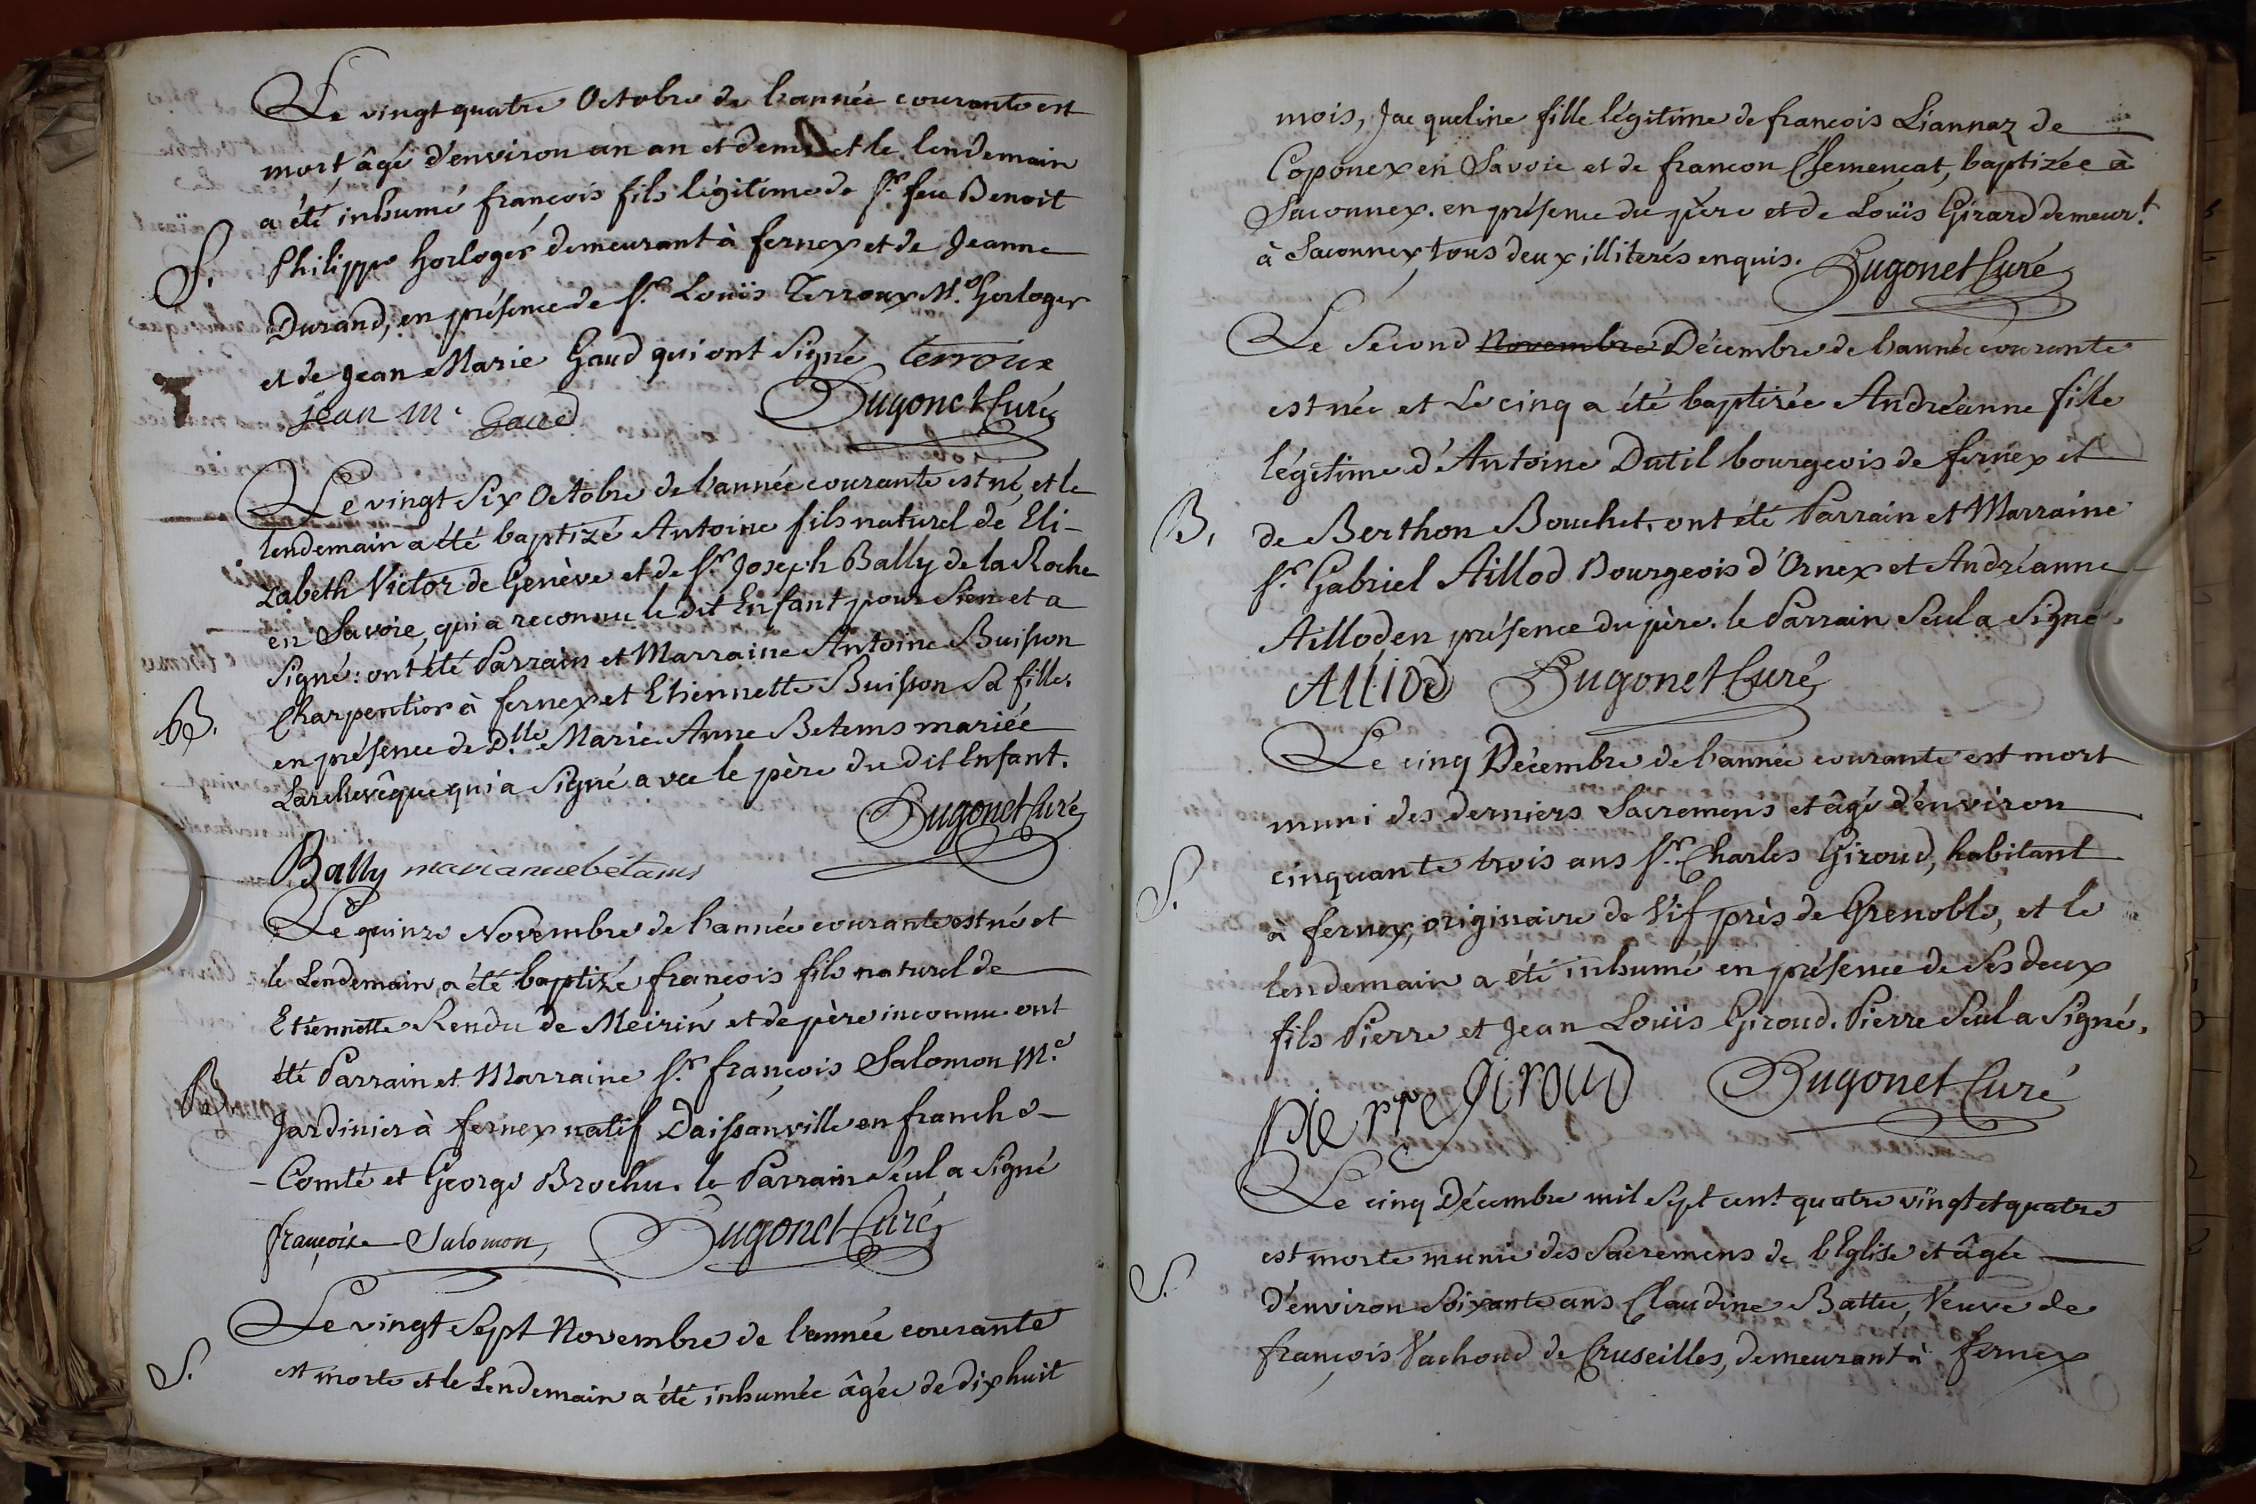 Le vingt quatre Octobre de l'année courante est
mort âgé d'environ un an et demi et le lendemain
a été inhumé françois fils légitime de Sr. feu Benoit
S. Philippe horloger demeurant à fernex et de Jeanne
Durand, en présence de Sr. Louïs Terroux Me. horloger
et de Jean Marie Gaud qui ont Signé terroux
jean m. Gaud Dugonet Curé
Le vingt Six Octobre de l'année courante est né, et le
lendemain a été baptizé Antoine fils naturel de Eli-
zabeth Victor de Genève et de Sr. Joseph Bally de la Roche
en Savoie, qui a reconnu le dit Enfant pour Sien et a
Signé: ont été Parrain et Marraine Antoine Buisson
B. Charpentier à fernex et Etiennette Buisson Sa fille,
en présence de Dlle. Marie Anne Betems mariée
Larchevêque qui a Signé avec le père du dit Enfant.
Dugonet Curé
Bally marianne betams
Le quinze Novembre de l'année courante est né et
le Lendemain a été baptizé françois fils naturel de
Etiennette Rendu de Meirin et de père inconnu. ont
B. été Parrain et Marraine Sr. françois Salomon Me.
Jardinier à fernex natif Daissanville en franche-
-Comté et George Brochu. le Parrain Seul a Signé
françois Salomon, Dugonet Curé
Le vingt Sept Novembre de l'année courante
S. est morte et le Lendemain a été inhumée âgée de dix huit
mois, Jacqueline fille légitime de francois Liannaz de
Coponex en Savoie et de francon Clemençat, baptizée à
Saconnex. en présence du père et de Louïs Girard demeurt.
à Saconnex, tous deux illiterés enquis. Dugonet Curé
Le Second Novembre Décembre de l'année courante
est née et Le cinq a été baptizée Andréanne fille
légitime d'Antoine Dutil bourgeois de fernex et
B. de Berthon Bouchet. ont été Parrain et Marraine
Sr. Gabriel Aillod Bourgeois d'Ornex et Andréanne
Aillod en présence du père. le Parrain Seul a Signé.
Alliod Dugonet Curé
Le cinq Décembre de l'année courante est mort
muni des derniers Sacremens et âgé d'environ
S. cinquante trois ans Sr. Charles Giroud, habitant
à fernex, originaire de Vif près de Grenoble, et le
lendemain a été inhumé en présence de Ses deux
fils Pierre et Jean Louïs Giroud. Pierre Seul a Signé.
Pierre giroud Dugonet Curé
Le cinq Décembre mil Sept cent quatre vingt et quatre
S. est morte munie des Sacremens de l'Eglise et âgée
d'environ Soixante ans Claudine Battu, Veuve de
françois Vachoud de Cruseilles, demeurant à fernex